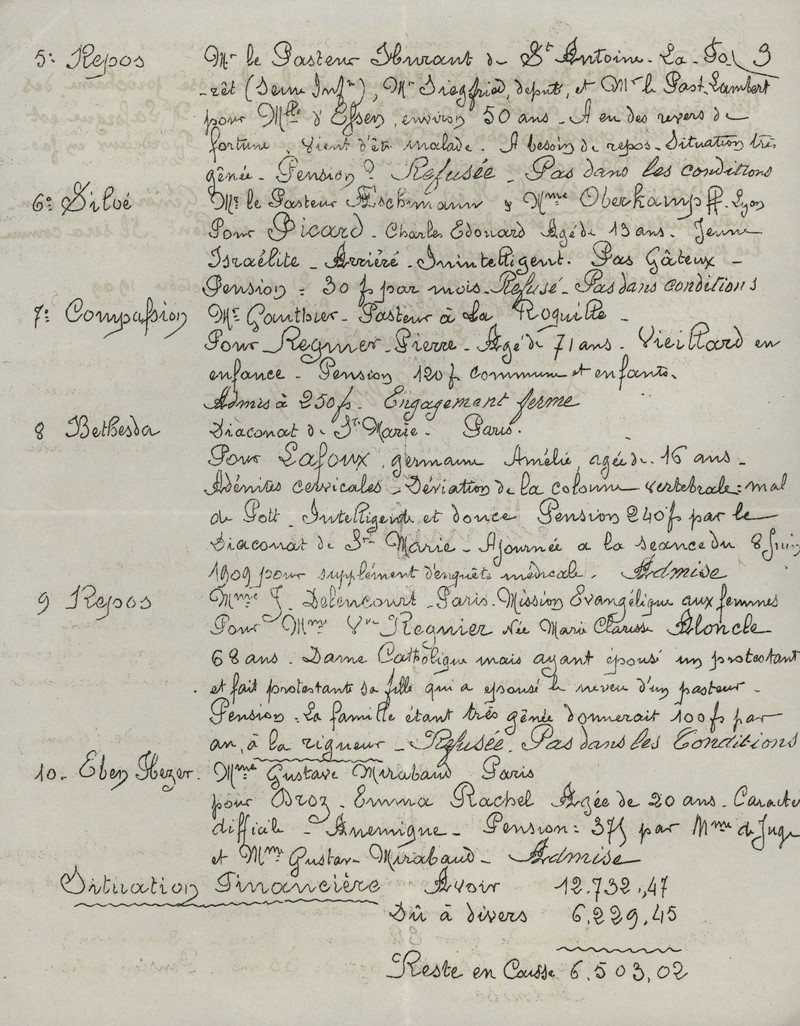 5º Repos Mr le Pasteur Hurant de St Antoine-La-Fo 3
-rêt (Seine Infre), Mr Siegfried, député, et Mr le Past. Lambert
pour Mlle d'Essen, environ 50 ans. A eu des revers de
fortune, vient d'être malade. A besoin de repos. Situation très
gênée. Pension? Refusée. Pas dans les conditions
6º Siloé Mr le Pasteur Æschimann & Mme Oberkampff. Lyon
Pour Picard. Charles Edouard Agé de 13 ans. Jeune
Israélite - Arriéré - Inintelligent. Pas Gâteux -
Pension = 30 f par mois. Refusé - Pas dans conditions
7º Compassion Mr Gauthier - Pasteur à La Roquille -
Pour Regnier - Pierre - Agé de 71 ans. Vieillard en
enfance - Pension 120 f. commune et enfants.
Admis à 250 fs. Engagement ferme
8 Bethesda Diaconat de Ste Marie. Paris.
Pour Lafoux, germaine Amélie, agée de 16 ans -
Adénites cervicales - Déviation de la colonne vertébrale: mal
de Pott. Intelligente et douce Pension 240 f par le
Diaconat de Ste Marie - Ajournée a la séance du 8 Juin
1909 pour supplément d'enquête médicale. Admise
9 Repos Mme J. Delencourt - Paris. Mission Evangélique aux femmes
Pour Mme Vve Regnier Née Marie Clarisse Aloncle
68 ans. Dame Catholique mais ayant épousé un protestant
et fait protestante sa fille qui a épousé le neveu d'un pasteur -
Pension: La famille étant très gênée donnerait 100 fs par
an, à la rigueur - Refusée. Pas dans les Conditions
10. Eben Hezer. Mme Gustave Mirabaud Paris
pour Droz. Emma Rachel Agée de 20 ans. Caractè
difficile - Anémique - Pension: 375 par Mme de Juge
et Mme Gustav- Mirabaud - Admise
Situation Financière Avoir 12.732,47
Dû à divers 6.229,45
Reste en Caisse 6.503,02